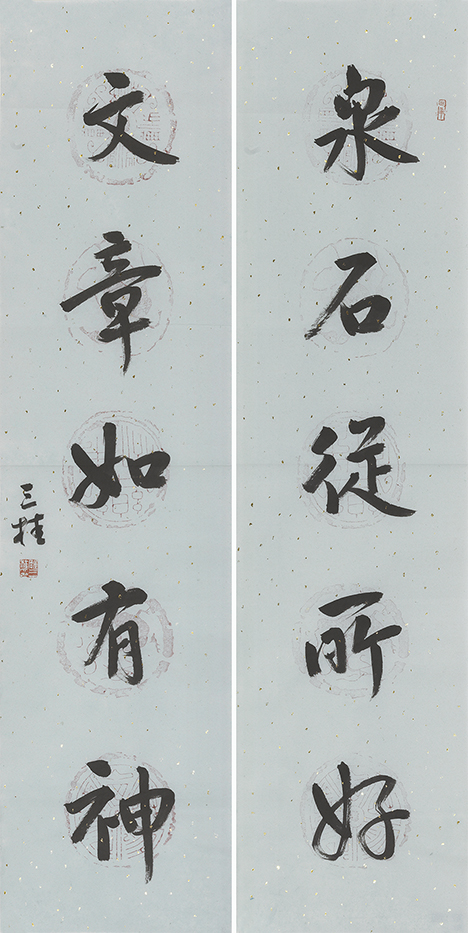 泉石從所好
文章如有神
三桂